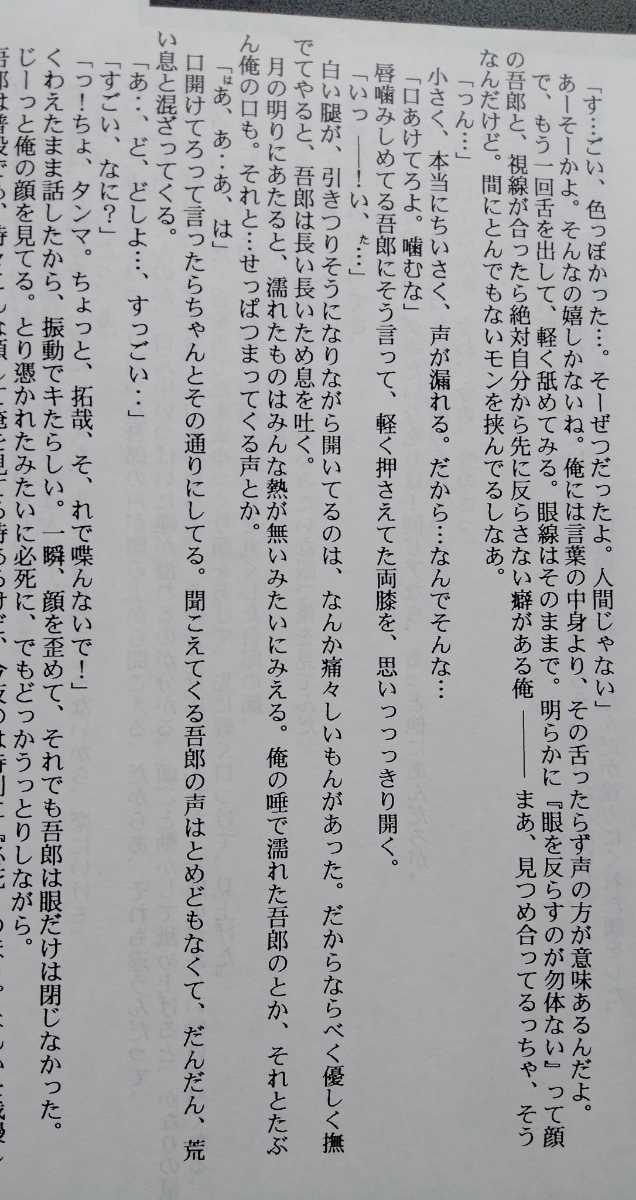 「す…ごい、色っぽかった…。そーぜつだったよ。人間じゃない」
あーそーかよ。そんなの嬉しかないね。俺には言葉の中身より、その舌ったらず声の方が意味あるんだよ。
で、もう一回舌を出して、軽く舐めてみる。眼線はそのままで。明らかに『眼を反らすのが勿体ない』って顔
の吾郎と、視線が合ったら絶対自分から先に反らさない癖がある俺――まあ、見つめ合ってるっちゃ、そう
なんだけど。間にとんでもないモンを挟んでるしなあ。
「っん…」
小さく、本当にちいさく、声が漏れる。だから…なんでそんな…
「口あけてろよ。噛むな」
唇噛みしめてる吾郎にそう言って、軽く押さえてた両膝を、思いっっっきり開く。
「いっ――！い、た…」
白い腿が、引きつりそうになりながら開いてるのは、なんか痛々しいもんがあった。だからならべく優しく撫
でてやると、吾郎は長い長いため息を吐く。
月の明りにあたると、濡れたものはみんな熱が無いみたいにみえる。俺の唾で濡れた吾郎のとか、それとたぶ
ん俺の口も。それと…せっぱつまってくる声とか。
「はあ、あ‥あ、は」
口開けてろって言ったらちゃんとその通りにしてる。聞こえてくる吾郎の声はとめどもなくて、だんだん、荒
い息と混ざってくる。
「あ‥、ど、どしよ…、すっごい‥」
「すごい、なに？」
「っ！ちょ、タンマ。ちょっと、拓哉、そ、れで喋んないで！」
くわえたまま話したから、振動でキたらしい。一瞬、顔を歪めて、それでも吾郎は眼だけは閉じなかった。
じーっと俺の顔を見てる。とり憑かれたみたいに必死に、でもどっかうっとりしながら。
吾郎は普段でも、時々こんな顔して俺を見てる時あるけど、今夜のは特別に